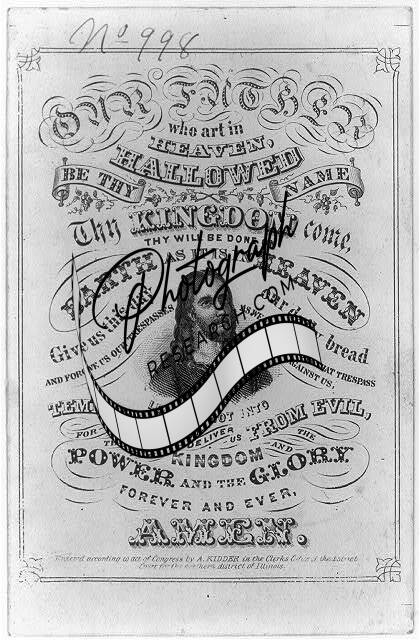 No 998
OUR FATHER
who art in
HEAVEN,
HALLOWED
BE THY NAME
Thy KINGDOM come,
THY WILL BE DONE
EARTH AS IT IS IN HEAVEN
Photograph
RESEARCH.COM
Give us this day our daily bread
AND FORGIVE US OUR TRESPASSES AS WE THAT TRESPASS
AGAINST US,
NOT INTO
DELIVER US FROM EVIL,
FOR THE
KINGDOM AND
POWER AND THE GLORY
FOREVER AND EVER,
AMEN.
Entered according to act of Congress by A. KIDDER in the Clerks Office of the District
Court for the northern district of Illinois.